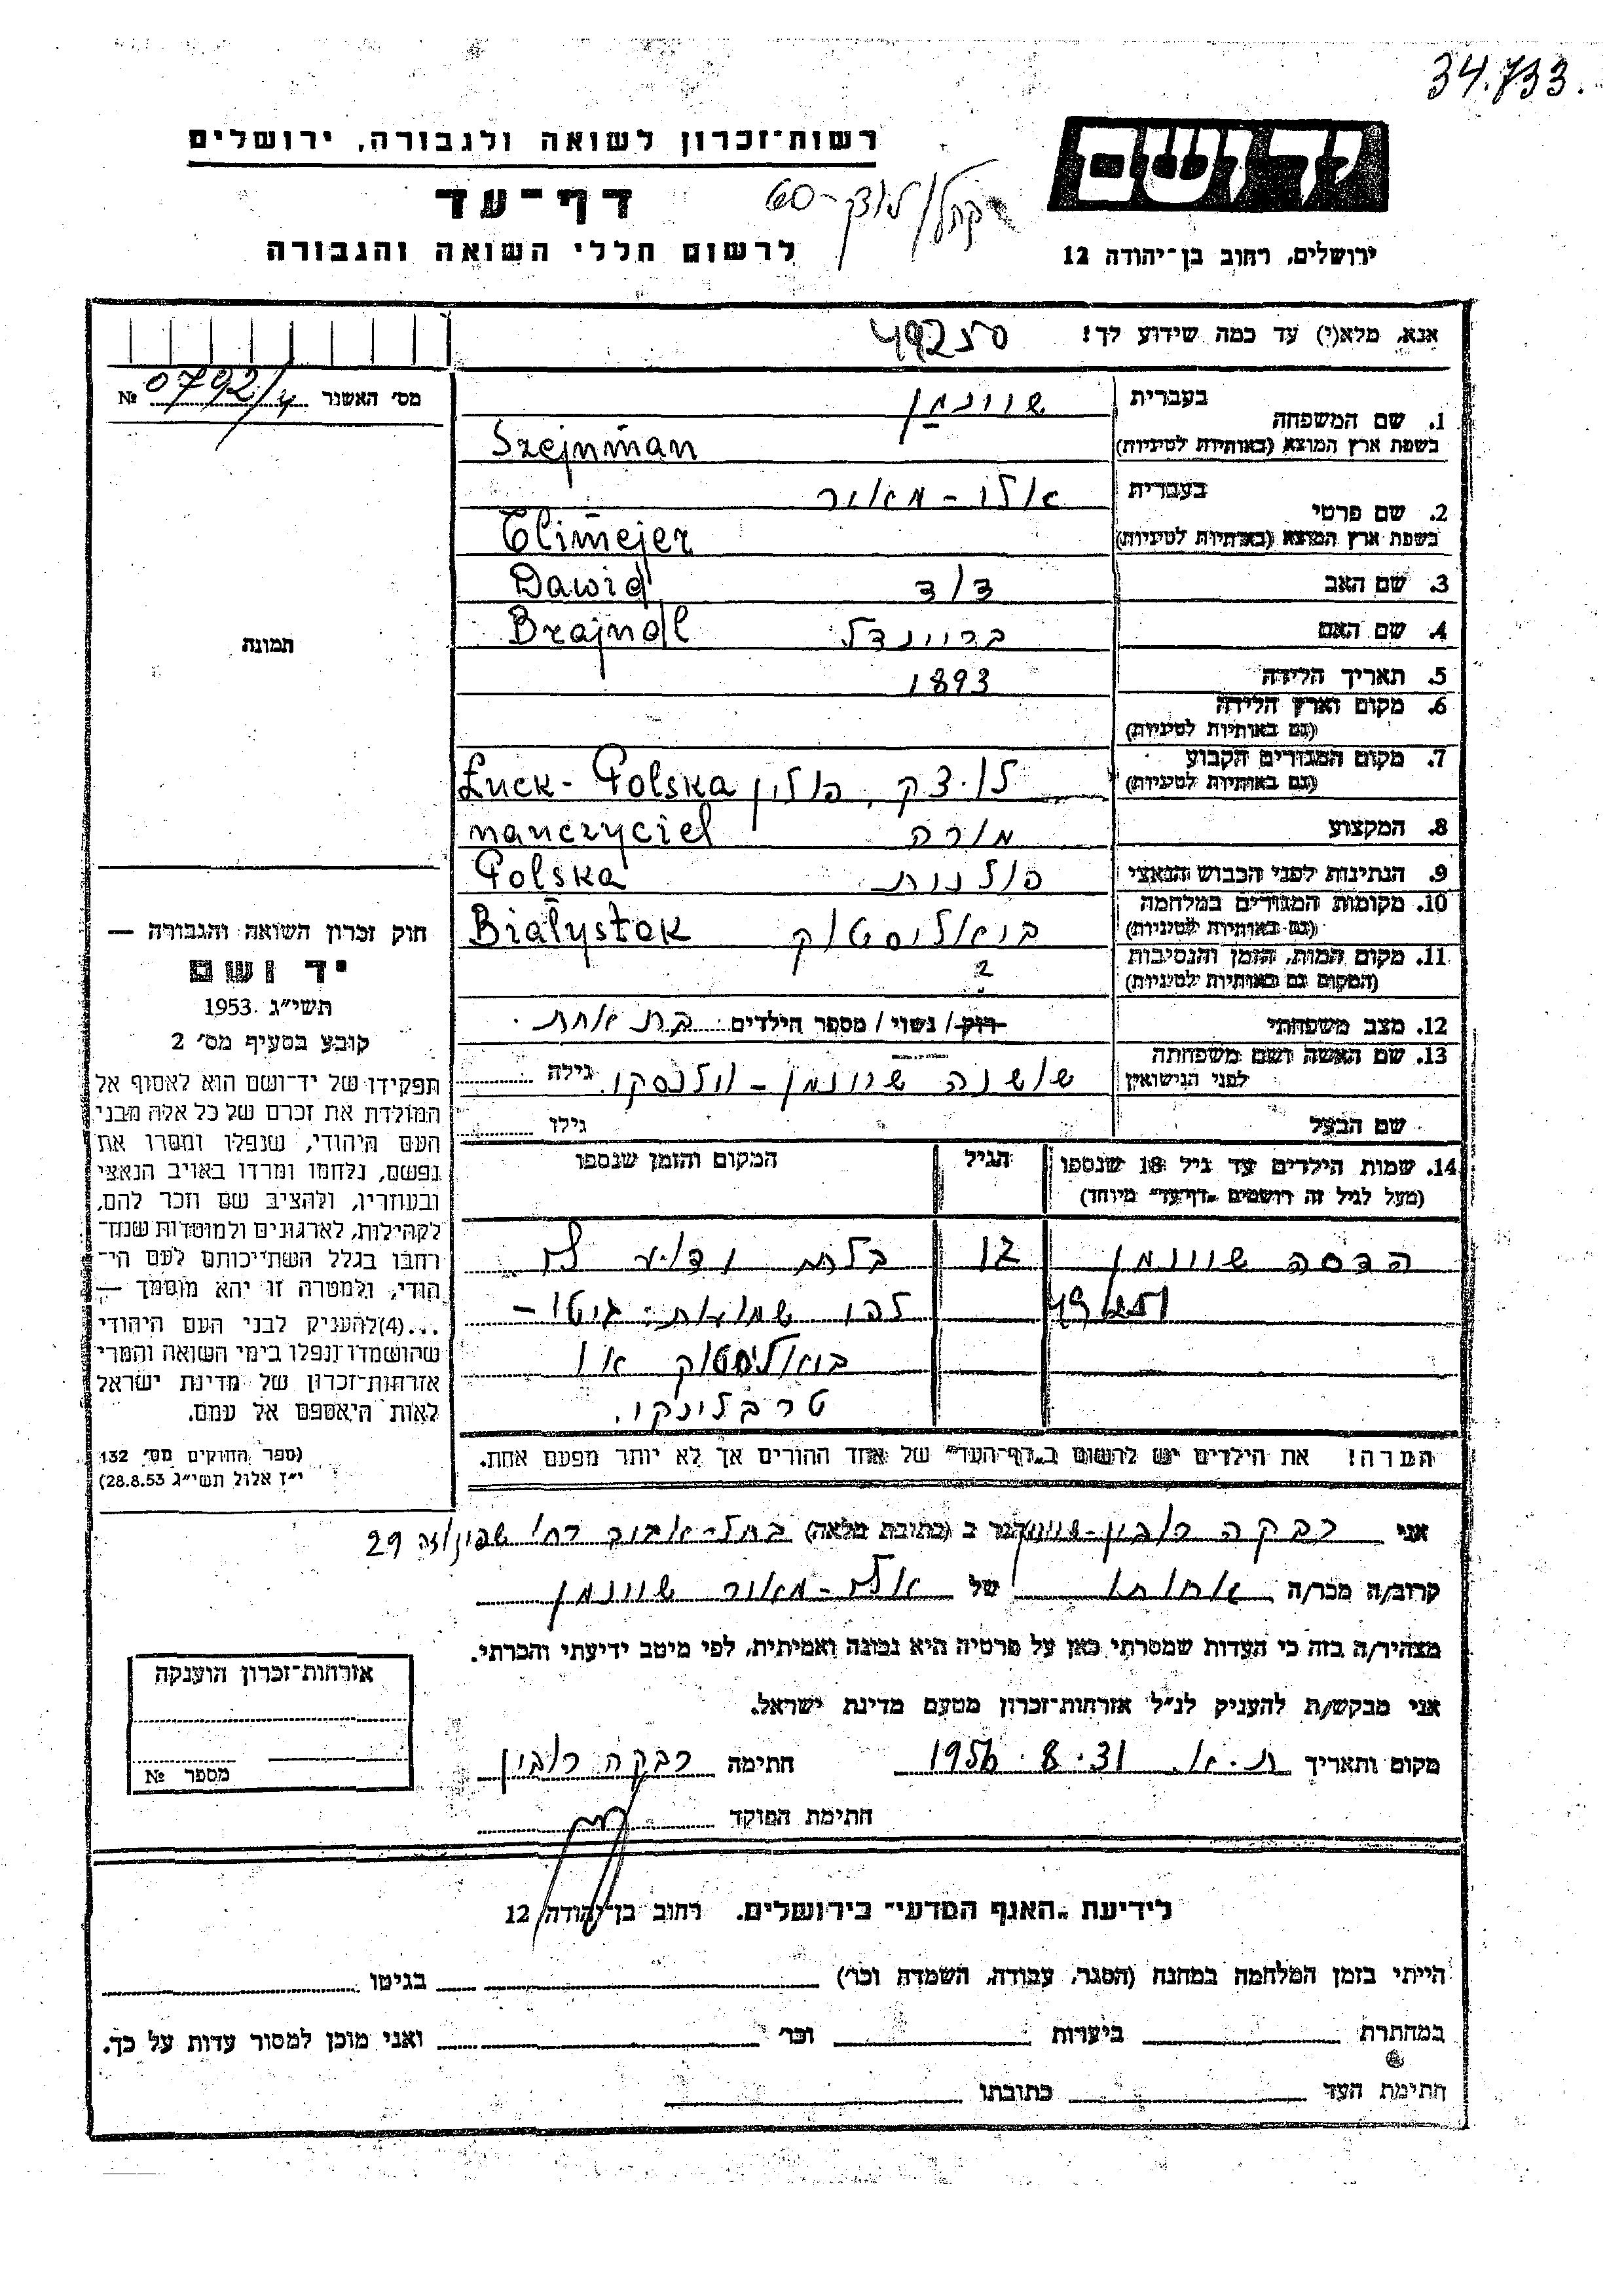 34.733.
רשות־זכרון לשואה ולגבורה, ירושלים
יד ושם
דף־עד
לרשום חללי השואה והגבורה
ירושלים, רחוב בן־יהודה 12
אנא, מלא(י) עד כמה שידוע לך!
49250
מס׳ האשנר 0792/4 №
1. שם המשפחה בעברית שיינמן
בשפת ארץ המוצא (באותיות לטיניות) Szejnman
2. שם פרטי בעברית אלי-מאיר
בשפת ארץ המוצא (באותיות לטיניות) Elimejer
3. שם האב דוד Dawid
4. שם האם בריינדל Brajndl
5. תאריך הלידה 1893
6. מקום וארץ הלידה
(גם באותיות לטיניות)
7. מקום המגורים הקבוע
(גם באותיות לטיניות) לוצק, פולין Łuck - Polska
8. המקצוע מורה nauczyciel
9. הנתינות לפני הכבוש הנאצי פולנית Polska
10. מקומות המגורים במלחמה
(גם באותיות לטיניות) ביאליסטוק Białystok
11. מקום המות, הזמן והנסיבות
(המקום גם באותיות לטיניות) ?
12. מצב משפחתי רווק / נשוי / מספר הילדים בת אחת.
13. שם האשה ושם משפחתה
לפני הנישואין שושנה שיינמן - וילנסקי גילה
שם הבעל גילו
14. שמות הילדים עד גיל 18 שנספו הגיל המקום והזמן שנספו
(מעל לגיל זה רושמים "דף־עד" מיוחד)
הדסה שיינמן בלתי ידוע לי
49251 לפי שמועות: גיטו -
ביאליסטוק או
טרבלינקי.
הערה! את הילדים יש לרשום ב"דף־העד" של אחד ההורים אך לא יותר מפעם אחת.
תמונה
חוק זכרון השואה והגבורה —
יד ושם
תשי״ג 1953
קובע בסעיף מס׳ 2
תפקידו של יד־ושם הוא לאסוף אל
המולדת את זכרם של כל אלה מבני
העם היהודי, שנפלו ומסרו את
נפשם, נלחמו ומרדו באויב הנאצי
ובעוזריו, ולהציב שם וזכר להם,
לקהילות, לארגונים ולמוסדות שנח־
רחבו בגלל השתייכותם לעם הי־
הודי, ולמטרה זו יהא מוסמך —
...(4)להעניק לבני העם היהודי
שהושמדו ונפלו בימי השואה והמרי
אזרחות־זכרון של מדינת ישראל
לאות היאספם אל עמם.
(ספר החוקים מס׳ 132
י״ז אלול תשי״ג 28.8.53)
אני רבקה רובין-שיינמן הגר ב (כתובת מלאה) בתל-אביב רח׳ שפינוזה 29
קרוב/ה מכר/ה אחותו של אלי-מאיר שיינמן
מצהיר/ה בזה כי העדות שמסרתי כאן על פרטיה היא נכונה ואמיתית, לפי מיטב ידיעתי והכרתי.
אני מבקש/ת להעניק לנ״ל אזרחות־זכרון מטעם מדינת ישראל.
מקום ותאריך ת.א. 31.8.1956 חתימה רבקה רובין
חתימת הפוקד
אזרחות־זכרון הוענקה
מספר №
לידיעת "האגף המדעי" בירושלים. רחוב בן־יהודה 12
הייתי בזמן המלחמה במחנה (הסגר, עבודה, השמדה וכר׳) בגיטו
במחתרת ביערות וכר׳ ואני מוכן למסור עדות על כך.
חתימת העד כתובתו